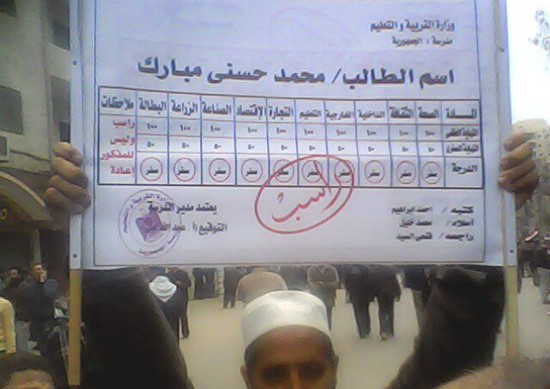 وزارة التربية و التعليم
مدرسة : الجمهورية
اسم الطالب/ محمد حسنى مبارك
المادة الصحة الثقافة الداخلية الخارجية التعليم التجارة الإقتصاد الصناعة الزراعة البطالة ملاحظات
١٠٠ ١٠٠ ١٠٠ ١٠٠ ١٠٠ ١٠٠ ١٠٠ ١٠٠ ١٠٠ ١٠٠ راسب
٥٠ ٥٠ ٥٠ ٥٠ ٥٠ ٥٠ ٥٠ ٥٠ ٥٠ ٥٠ وليس
للمذكور
الدرجة صفر صفر صفر صفر صفر صفر صفر صفر صفر صفر إعادة
راسب
كتبه / احمد ابراهيم
أملاه / محمد خليل
راجعه / فتحى السيد
يعتمد مدير
التوقيع/ عبد